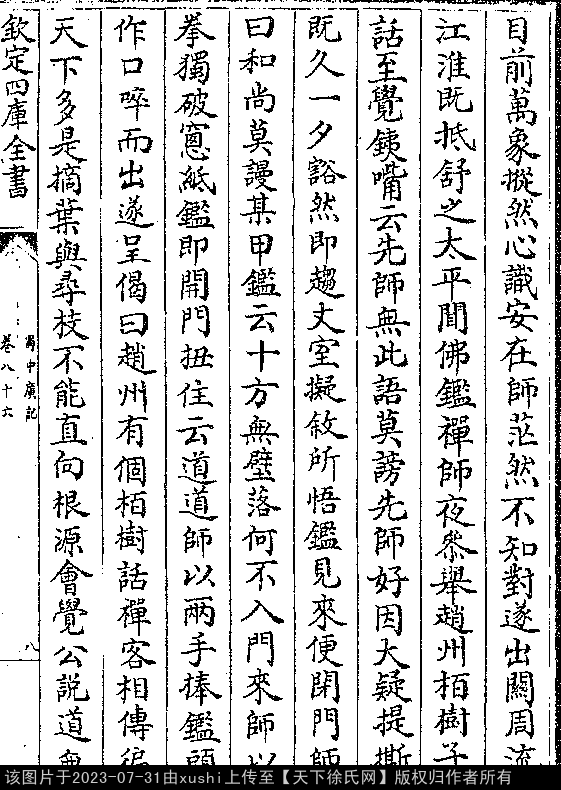 目前萬象摐然心識安在師茫然不知對遂出關周流
江淮既抵舒之太平聞佛鑑禪師夜叅舉趙州栢樹子
話至覺鐵嘴云先師無此語莫謗先師好因大疑提撕
既久一夕豁然即趨丈室擬敘所悟鑑見來便閉門師
曰和尚莫謾某甲鑑云十方無壁落何不入門來師以
拳獨破窻紙鑑即開門扭住云道道師以兩手捧鑑頭
作口啐而出遂呈偈曰趙州有個栢樹話禪客相傳徧
天下多是摘葉與尋枝不能直向根源會覺公說道無
欽定四庫全書
蜀中廣記
卷八十六
八
该图片于2023-07-31由xushi上传至【天下徐氏网】版权归作者所有